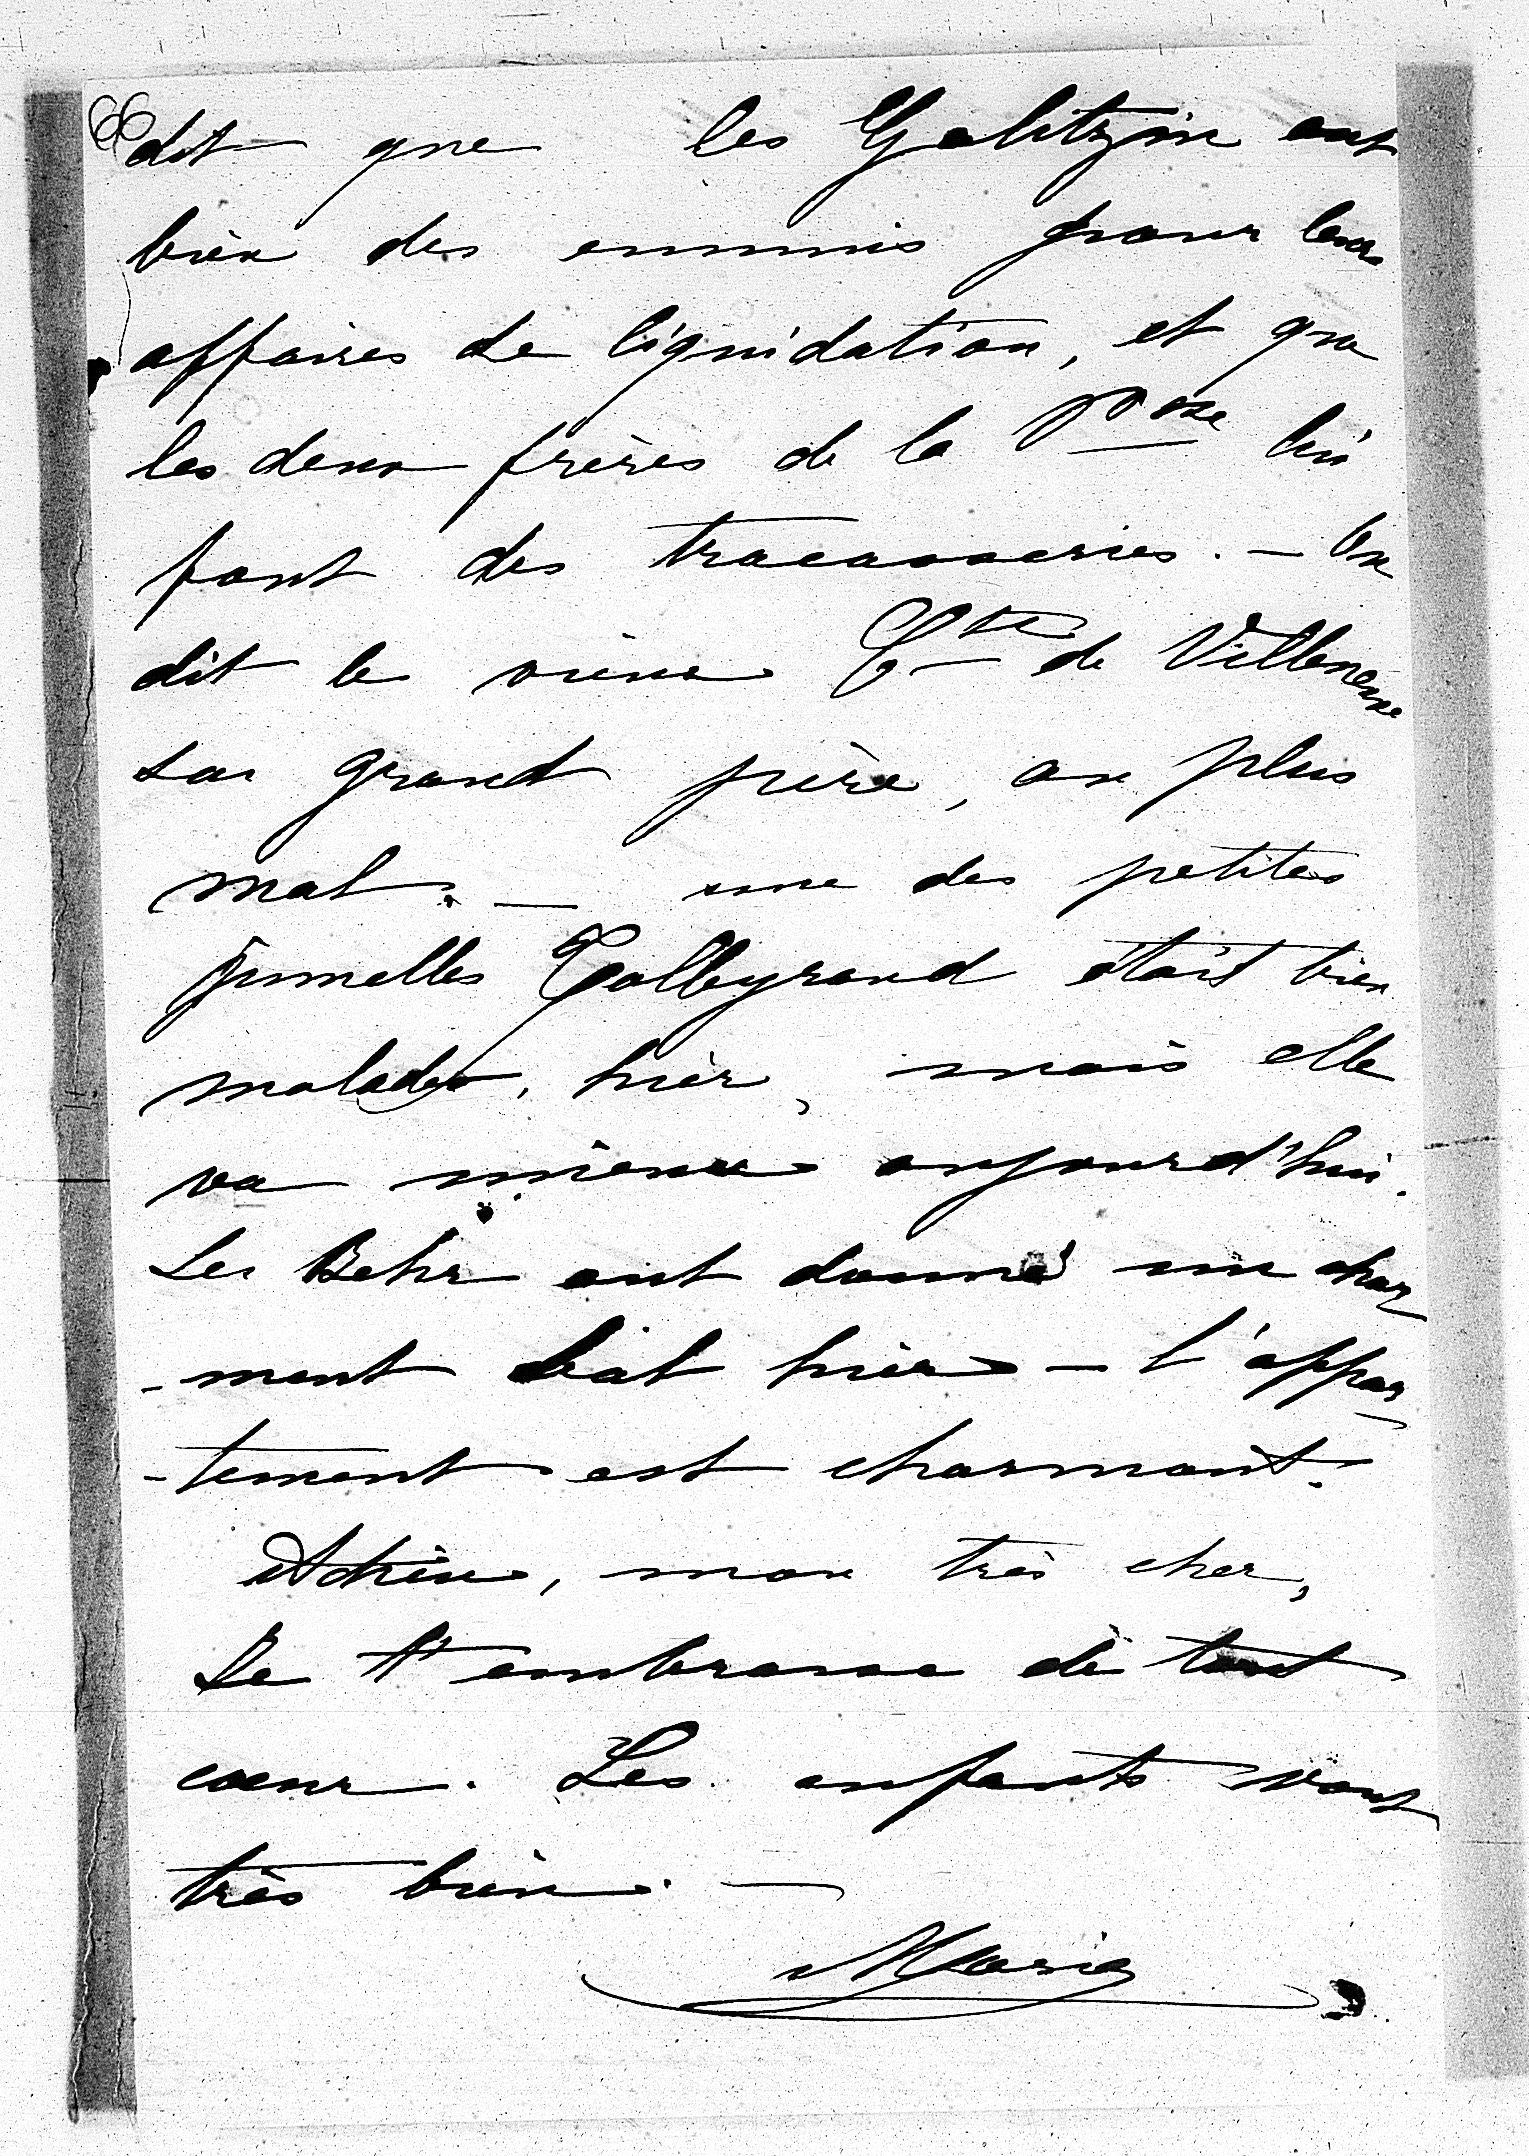 dit que les Galitzin ont
bien des ennuis pour leurs
affaires de liquidation, et que
les deux frères de la Psse lui
font des tracasseries. — On
dit le vieux Cte de Villeneuve
son grand père, au plus
mal. — une des petites
jumelles Talleyrand était bien
malade, hier, mais elle
va mieux aujourd'hui.
Les Behr ont donné un char
-mant bal hier — l'appar
-tement est charmant.
Adieu, mon très cher,
Je t'embrasse de tout
cœur. Les enfants vont
très bien. —
Marie